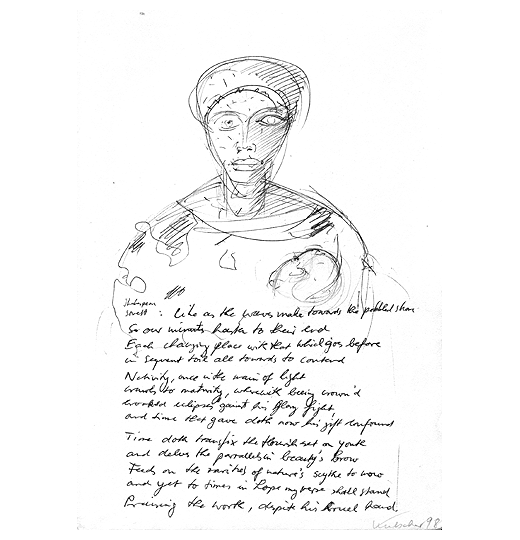 Shakespeare
Sonett : Like as the waves make towards the pebbled shore
So our minutes hasten to their end
Each changing place with that which goes before
in sequent toil all towards to contend
Nativity, once in the main of light
crawls to maturity, wherewith being crown'd
crooked eclipses gainst his glory fight
and time that gave doth now his gift confound
Time doth transfix the flourish set on youth
and delves the parallels in beauty's brow
Feeds on the rarities of nature's scythe to mow
and yet to times in hope my verse shall stand
Praising the worth, despite his cruel hand.
98